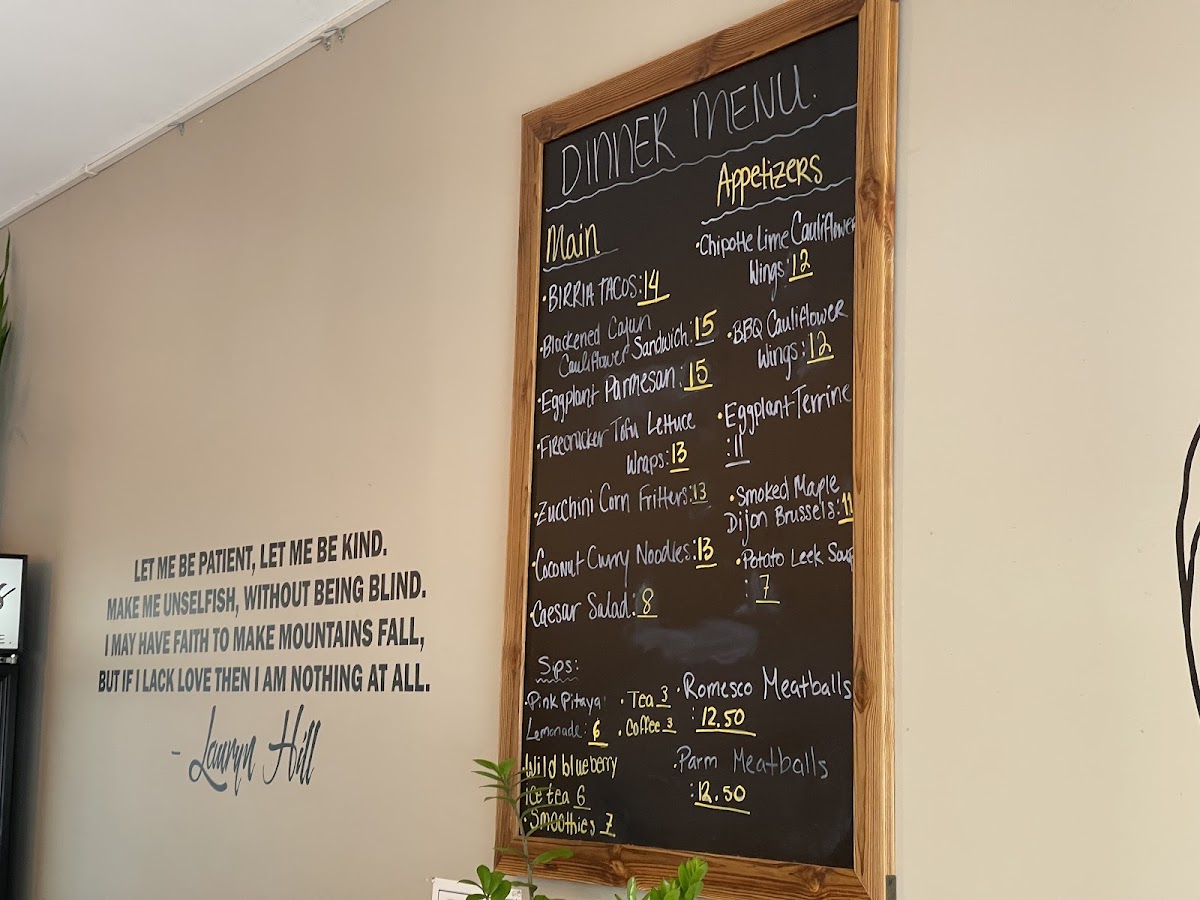 LET ME BE PATIENT, LET ME BE KIND.
MAKE ME UNSELFISH, WITHOUT BEING BLIND.
I MAY HAVE FAITH TO MAKE MOUNTAINS FALL,
BUT IF I LACK LOVE THEN I AM NOTHING AT ALL.
- Lauryn Hill
DINNER MENU.
Main
•BIRRIA TACOS: 14
•Blackened Cajun
Cauliflower Sandwich: 15
•Eggplant Parmesan: 15
•Firecracker Tofu Lettuce
Wraps: 13
•Zucchini Corn Fritters: 13
•Coconut Curry Noodles: 13
•Caesar Salad: 8
Appetizers
•Chipotle Lime Cauliflower
Wings: 12
•BBQ Cauliflower
Wings: 12
•Eggplant Terrine
: 11
•Smoked Maple
Dijon Brussels: 11
•Potato Leek Soup
: 7
•Romesco Meatballs
: 12.50
•Parm Meatballs
: 12.50
Sips:
•Pink Pitaya
Lemonade: 6
•Wild blueberry
ice tea 6
•Smoothies 7
•Tea 3
•Coffee 3